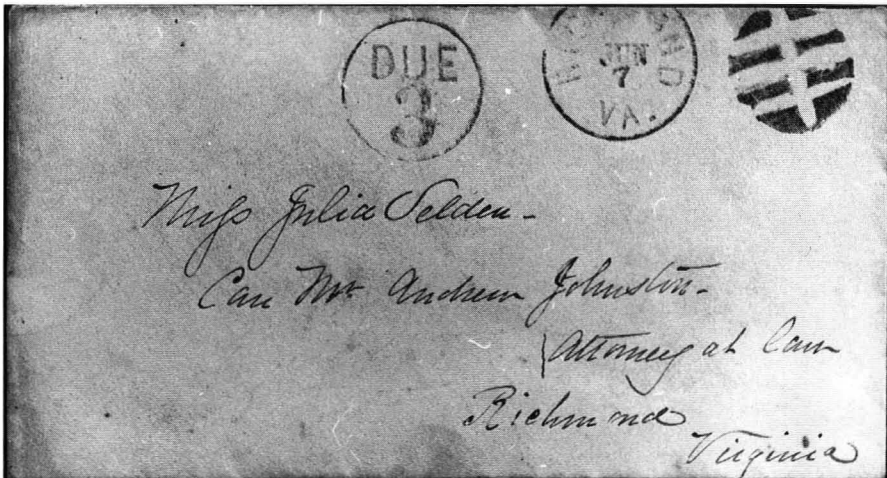 DUE
3
JUN
7
VA.
Miss Julia Selden -
Care Mr Andrew Johnston -
Attorney at Law
Richmond
Virginia